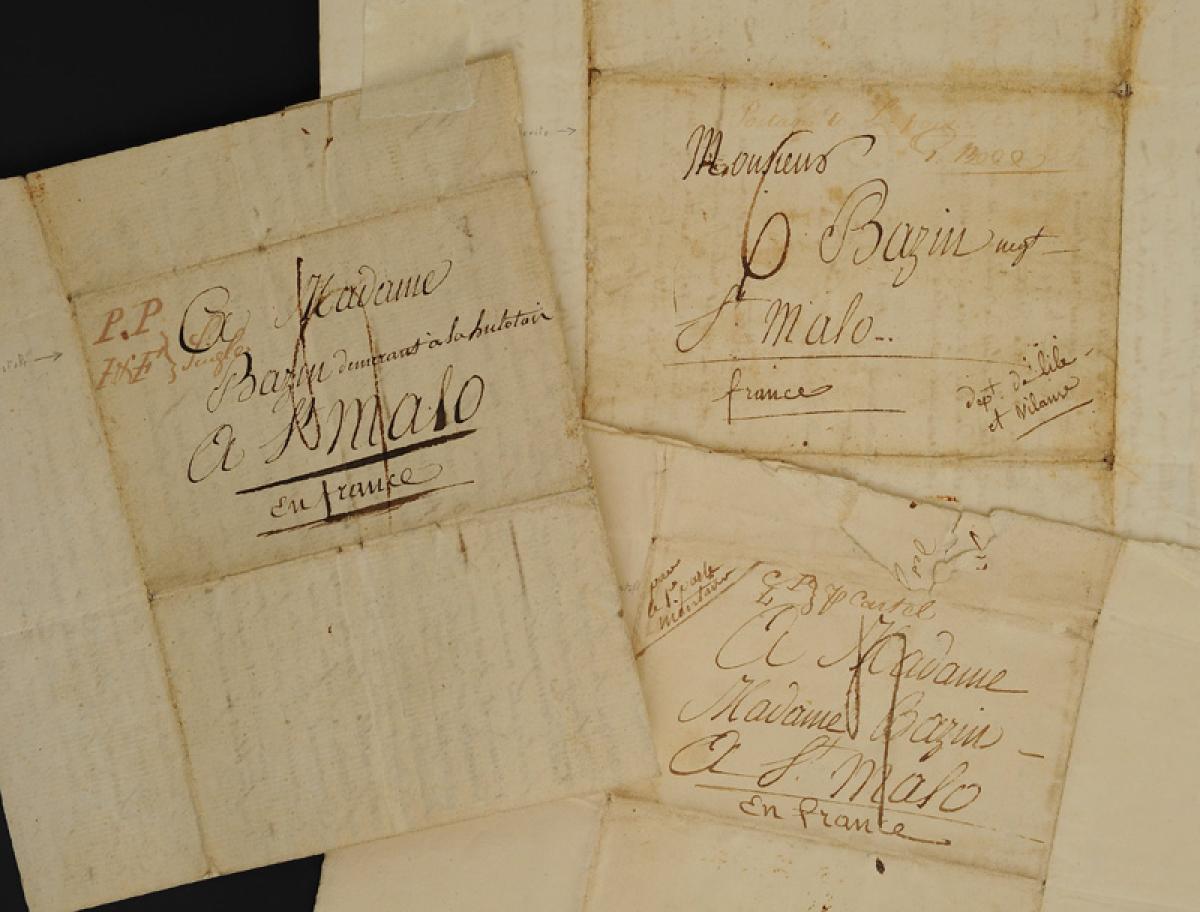 P.P
A Madame
Bazin demeurant a la hulotais
A St malo
En france
Monsieur
6
Bazin negt
St malo..
france
dept. de lile
et Vilaine
pour
C P
L
Cartel
A Madame
Madame Bazin
A St malo
En france